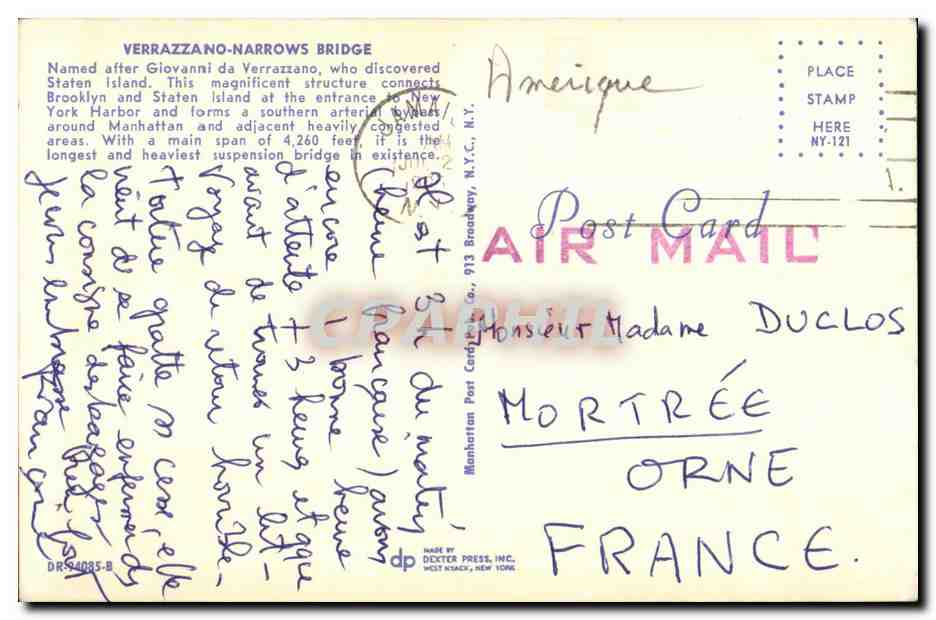 VERRAZZANO-NARROWS BRIDGE
Named after Giovanni da Verrazzano, who discovered
Staten Island. This magnificent structure connects
Brooklyn and Staten Island at the entrance to New
York Harbor and forms a southern arterial bypass
around Manhattan and adjacent heavily congested
areas. With a main span of 4,260 feet, it is the
longest and heaviest suspension bridge in existence.
Il est 3h du matin
(heure française) avons
encore 1 bonne heure
d'attente + 3 heures et qque
avant de trouver un lit -
Voyage du retour horrible,
Tortue gratte ss cesse, elle
vient de se faire enfermer ds
la consigne des bagages
Je vous embrasse bien fort
Françoise
DR-94085-B
Manhattan Post Card Pub. Co., 913 Broadway, N.Y.C., N.Y.
dp
MADE BY
DEXTER PRESS, INC.
WEST NYACK, NEW YORK
Amérique
PLACE
STAMP
HERE
NY-121
JAMAI
Post Card
AIR MAIL
CPAPHIL
Monsieur Madame DUCLOS
MORTRÉE
ORNE
FRANCE.